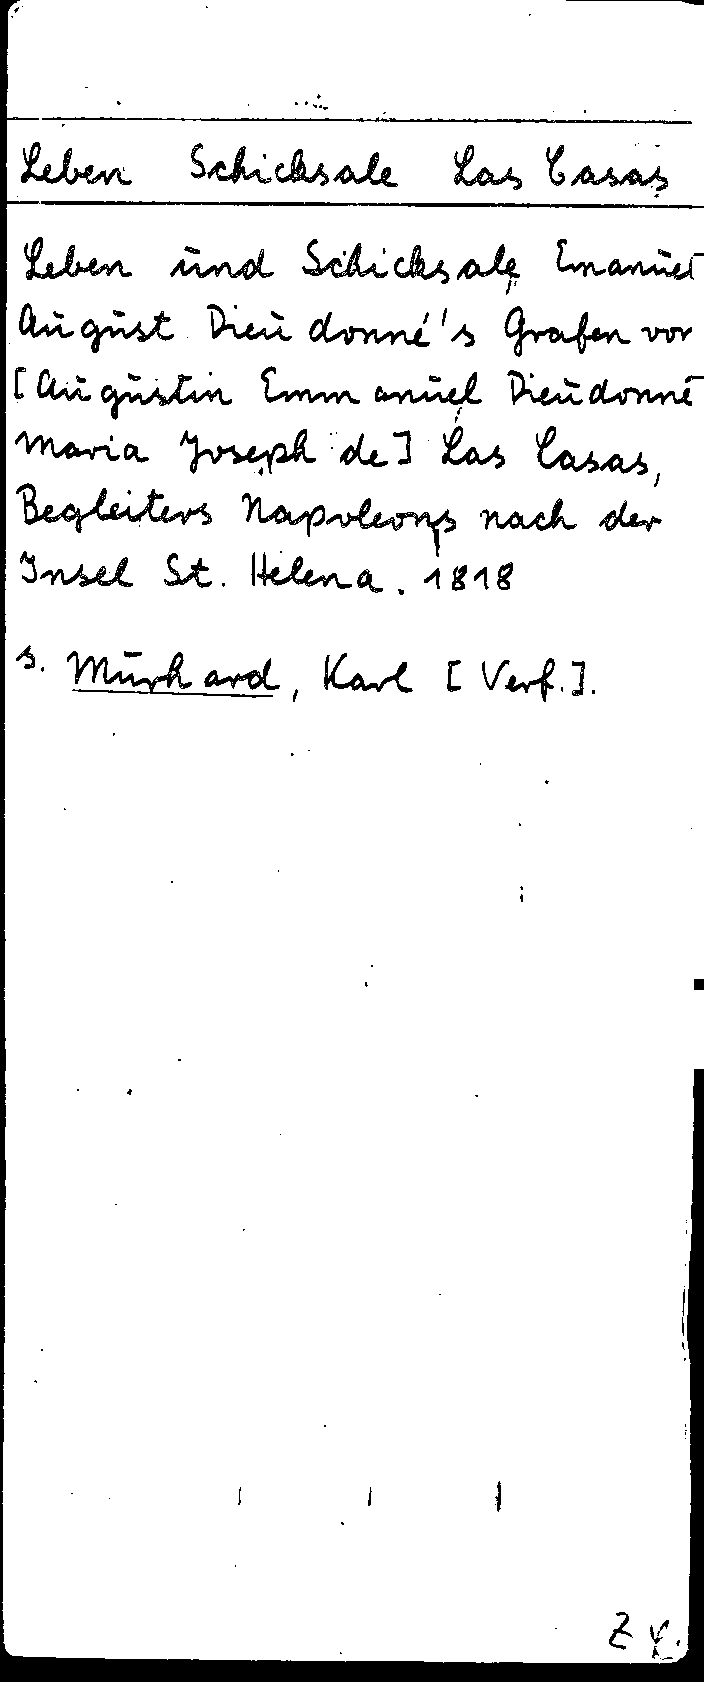 Leben Schicksale Las Casas
Leben und Schicksale Emanuel
August Dieudonné's Grafen von
[Augustin Emmanuel Dieudonné
Maria Joseph de] Las Casas,
Begleiters Napoleons nach der
Insel St. Helena. 1818
s. Murhard, Karl [Verf.].